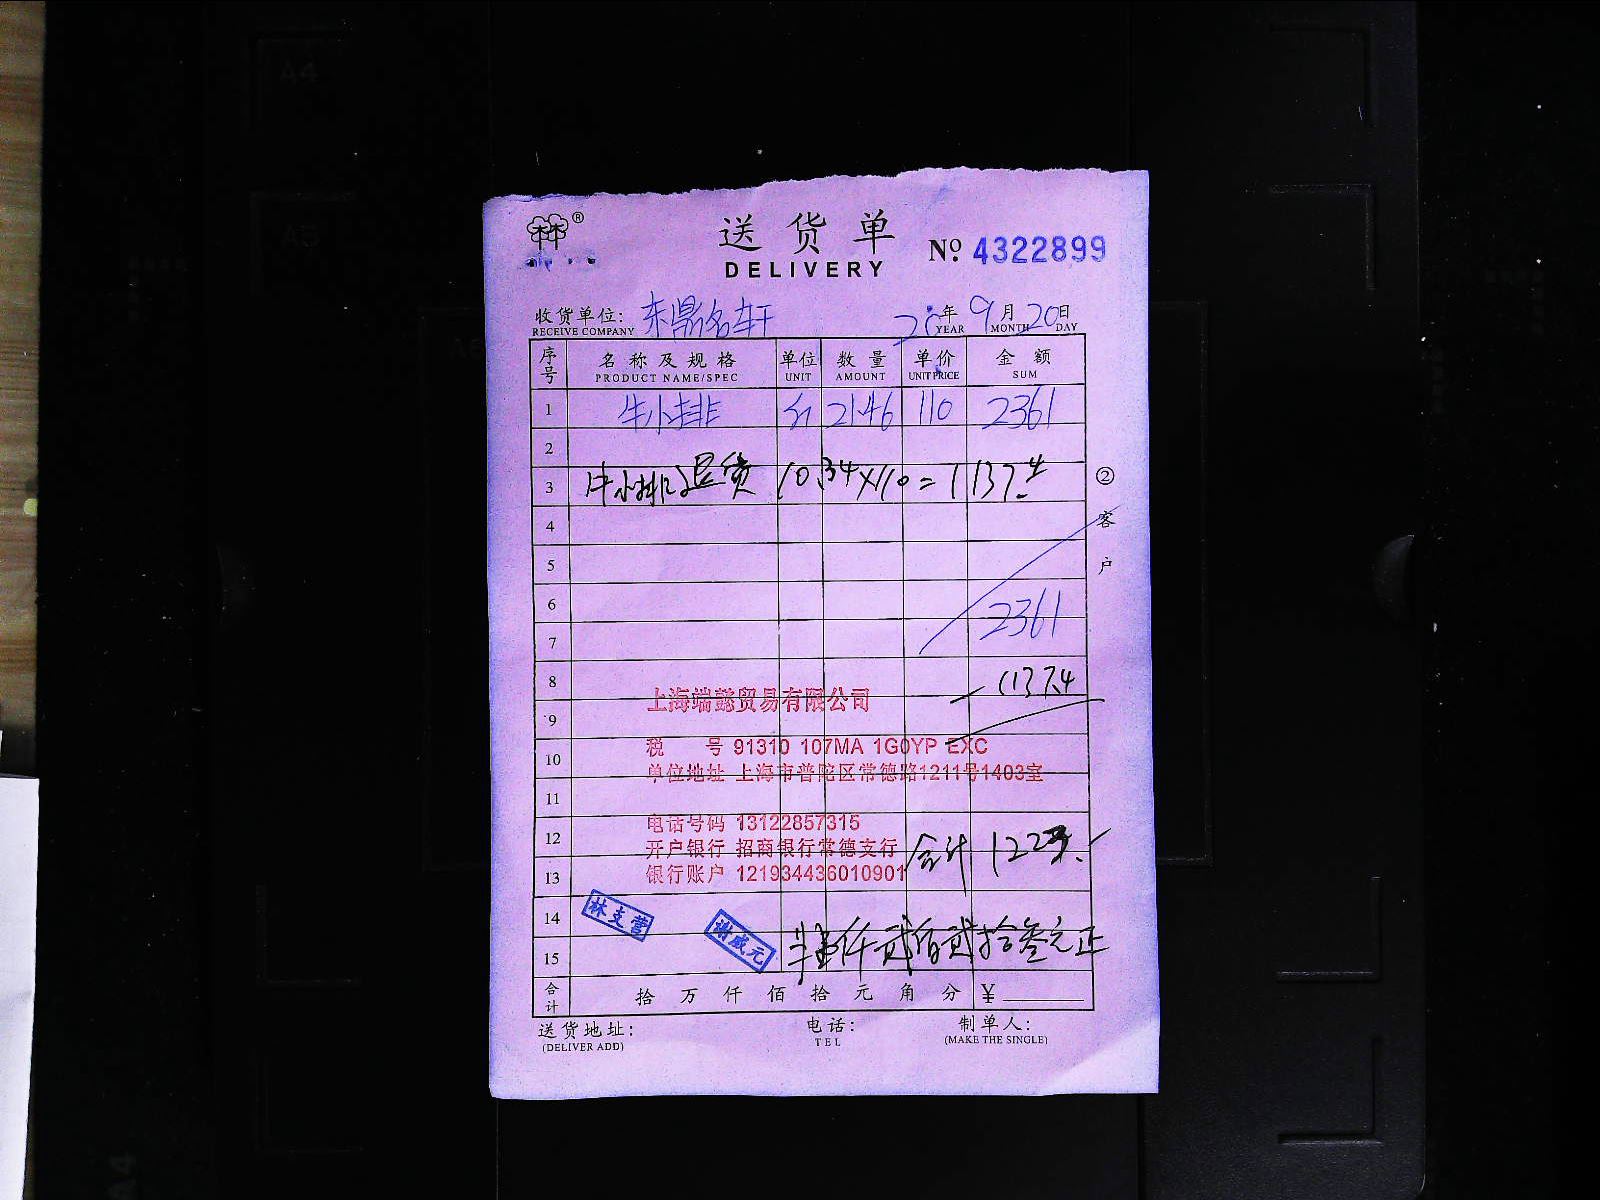 林®
送货单
DELIVERY
№ 4322899
收货单位: 东鼎名轩 20年9月20日
RECEIVE COMPANY YEAR MONTH DAY
序号 名称及规格 单位 数量 单价 金额
PRODUCT NAME/SPEC UNIT AMOUNT UNIT PRICE SUM
1 牛小排 斤 21.46 110 2361
2
3 牛小排退货 10.34×110=1137.4
4
5
6 2361
7
8 -1137.4
9
10
11
12 合计 1223.
13
14
15 仟贰佰贰拾叁元正
合计 拾万仟佰拾元角分 ¥
②客户
上海端懿贸易有限公司
税号 91310 107MA 1G0YP EXC
单位地址 上海市普陀区常德路1211号1403室
电话号码 13122857315
开户银行 招商银行常德支行
银行账户 121934436010901
林支营
谢威元
送货地址: 电话: 制单人:
(DELIVER ADD) TEL (MAKE THE SINGLE)
A4
A5
A6
A4